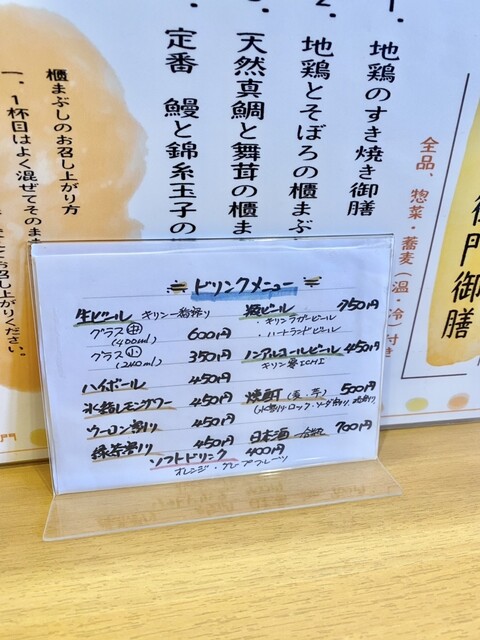 1. 地鶏のすき焼き御膳
2. 地鶏とそぼろの櫃まぶ
3. 天然真鯛と舞茸の櫃ま
定番 鰻と錦糸玉子の
全品、惣菜・蕎麦(温・冷)付き
御門御膳
櫃まぶしのお召し上がり方
一、1杯目はよく混ぜてそのまま
お召し上がりください。
ドリンクメニュー
生ビール キリン一番搾り
グラス中 600円
(400ml)
グラス小 350円
(240ml)
ハイボール 450円
氷結レモンサワー 450円
ウーロン割り 450円
緑茶割り 450円
瓶ビール 750円
・キリンラガービール
・ハートランドビール
ノンアルコールビール 450円
キリン零ICHI
焼酎(麦・芋) 500円
日本酒 一合瓶 700円
ソフトドリンク 400円
オレンジ・グレープフルーツ